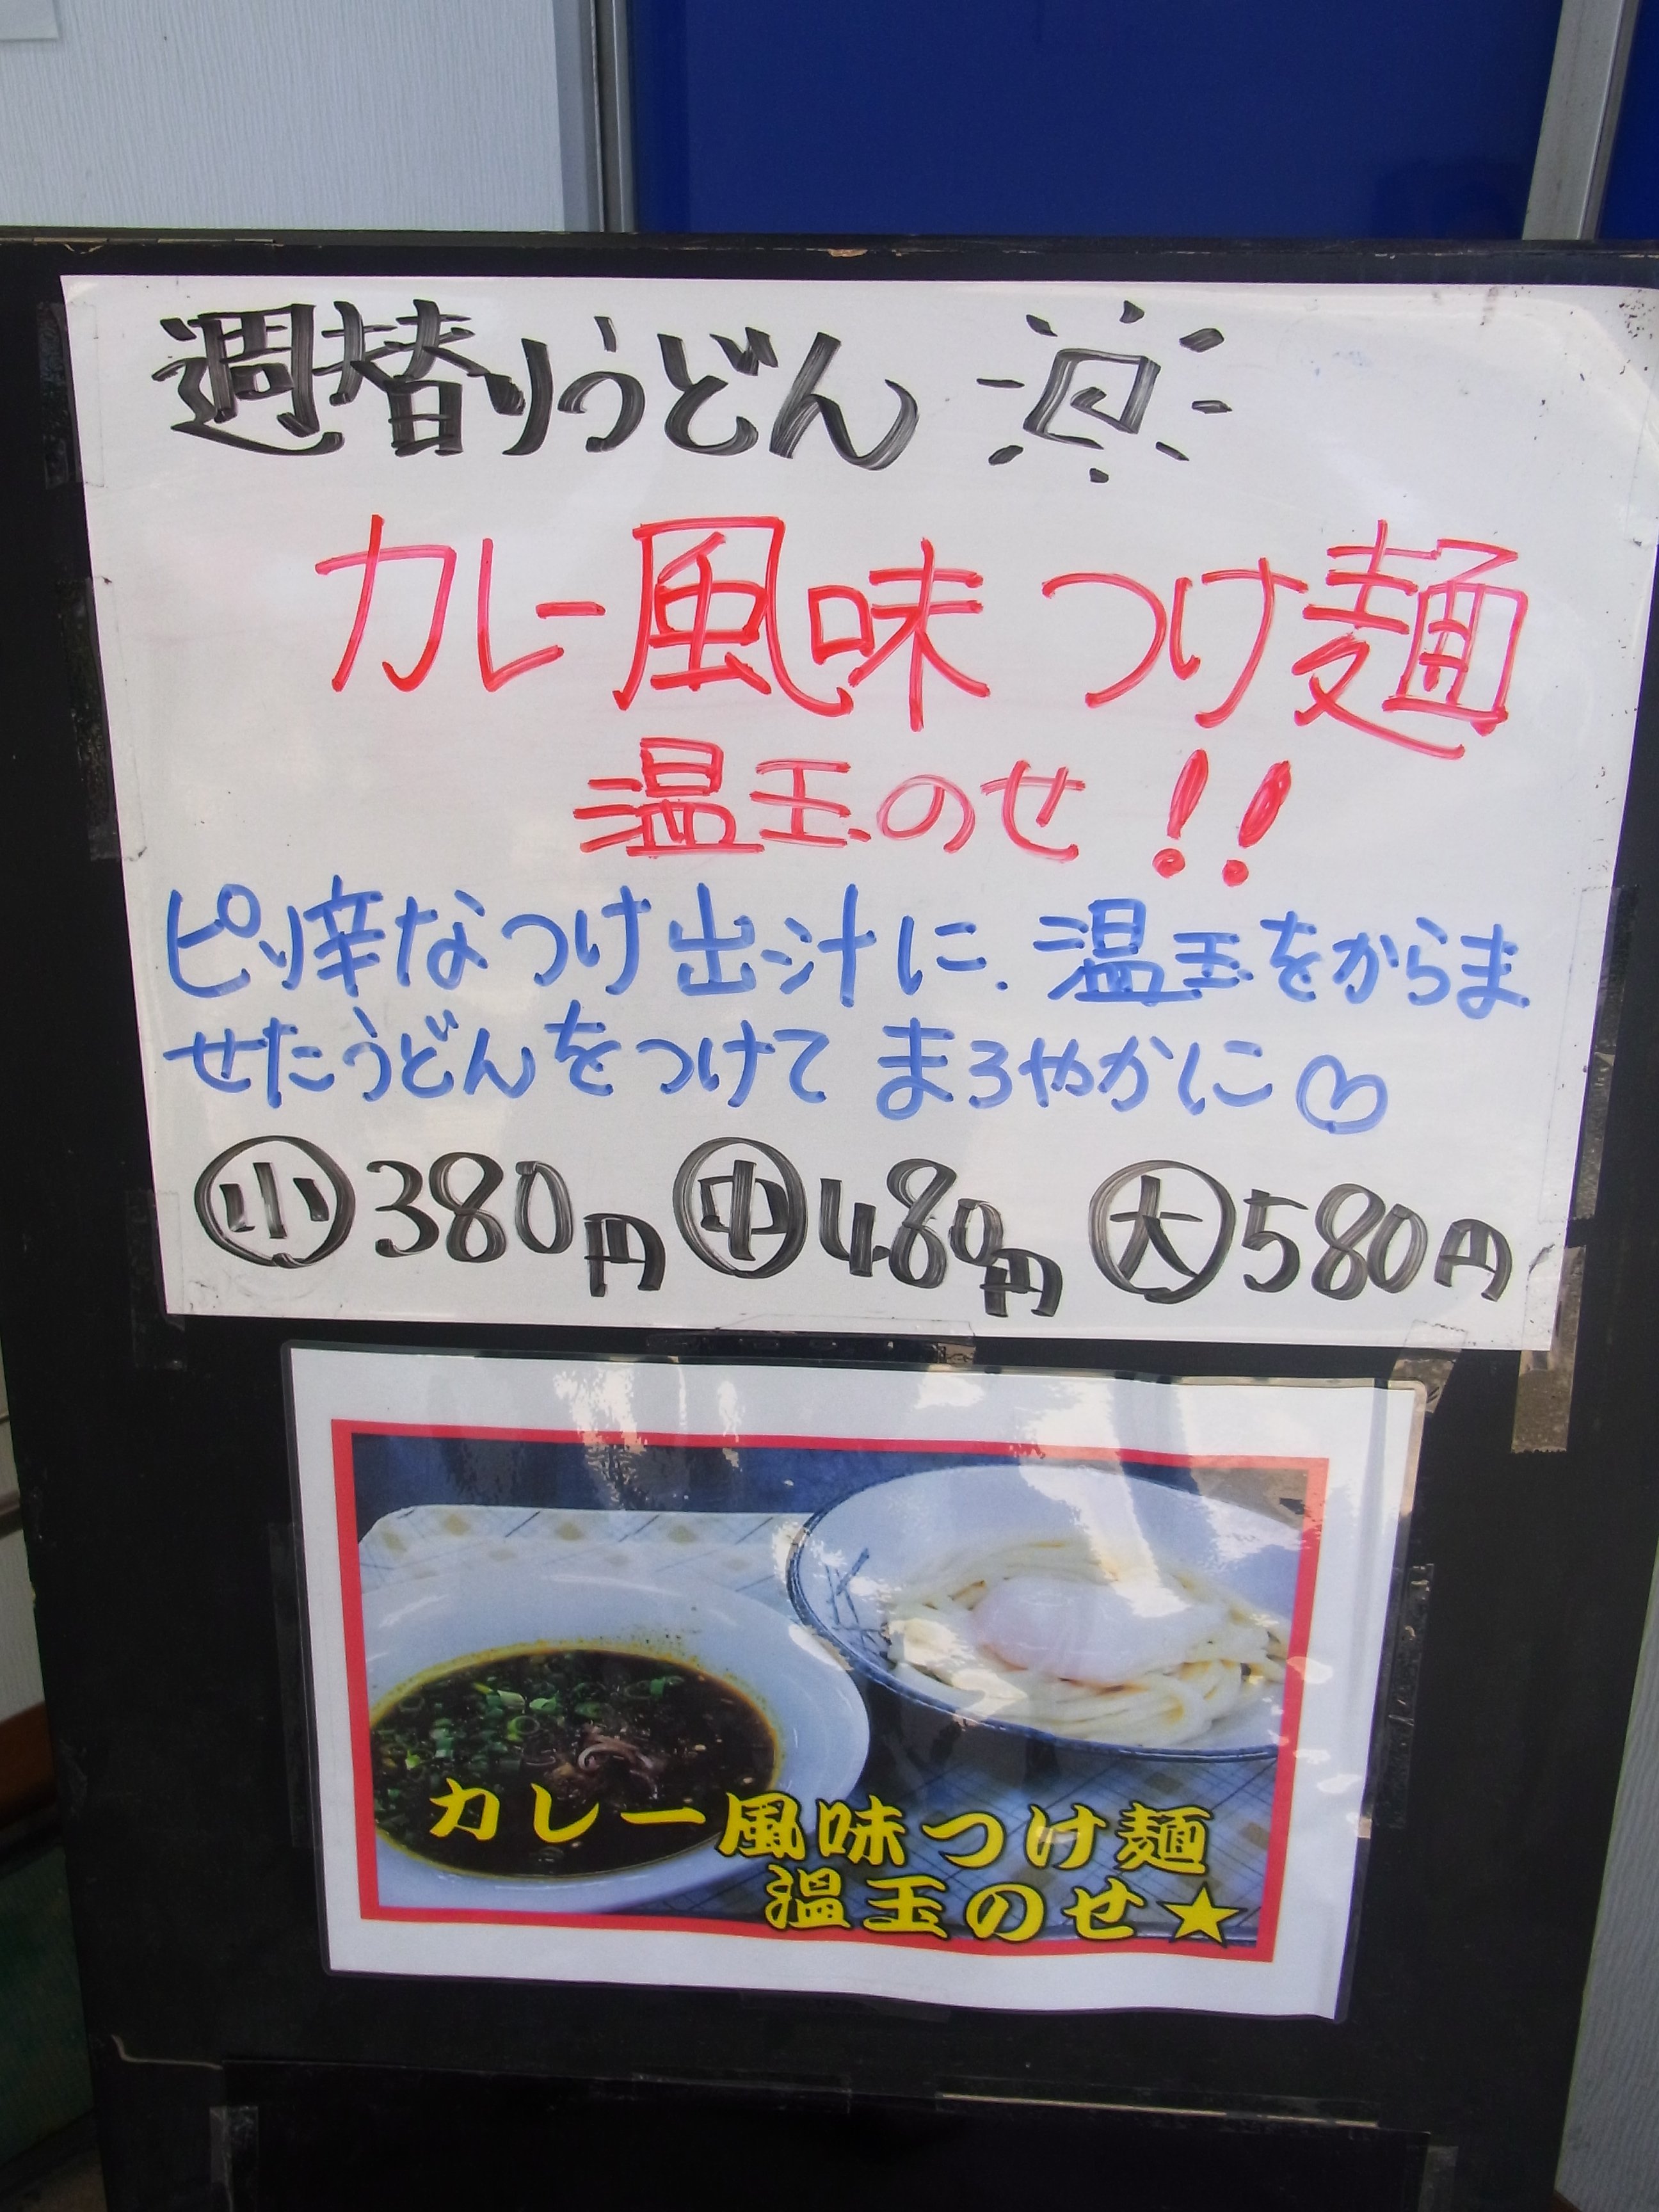 週替りうどん
カレー風味 つけ麺
温玉のせ!!
ピリ辛なつけ出汁に、温玉をからま
せたうどんをつけて まろやかに♡
小380円 中480円 大580円
カレー風味つけ麺
温玉のせ★